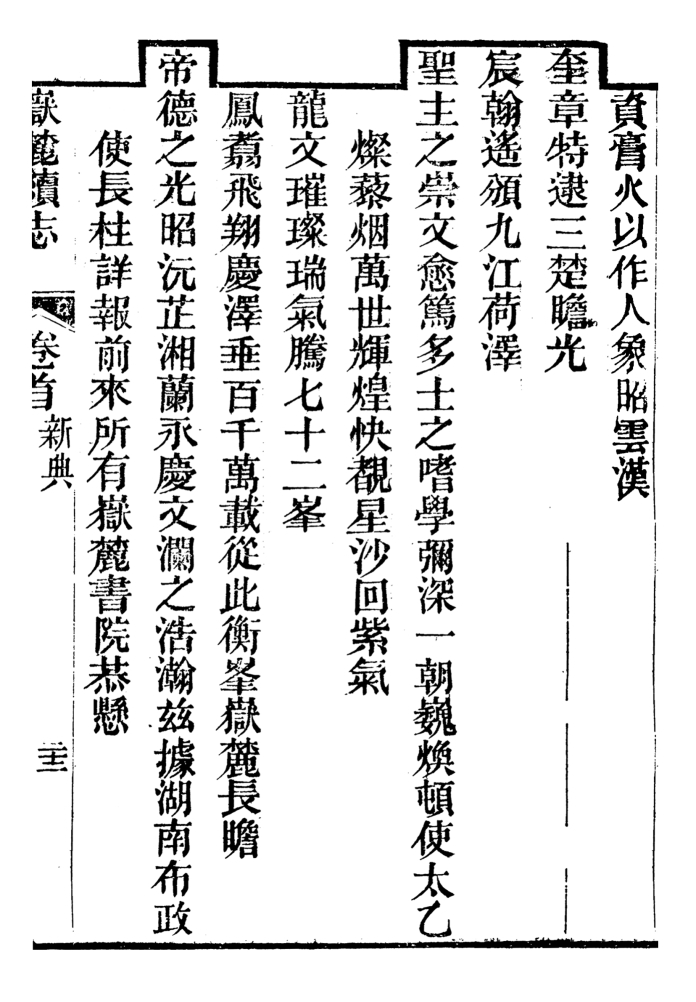 資膏火以作人象昭雲漢
奎章特逮三楚瞻光
宸翰遙頒九江荷澤
聖主之崇文愈篤多士之嗜學彌深一朝巍煥頓使太乙
燦藜烟萬世輝煌快覩星沙回紫氣
龍文璀璨瑞氣騰七十二峯
鳳翥飛翔慶澤垂百千萬載從此衡峯嶽麓長瞻
帝德之光昭沅芷湘蘭永慶文瀾之浩瀚兹據湖南布政
使長柱詳報前來所有嶽麓書院恭懸
嶽麓續志 卷首 新典 二十三